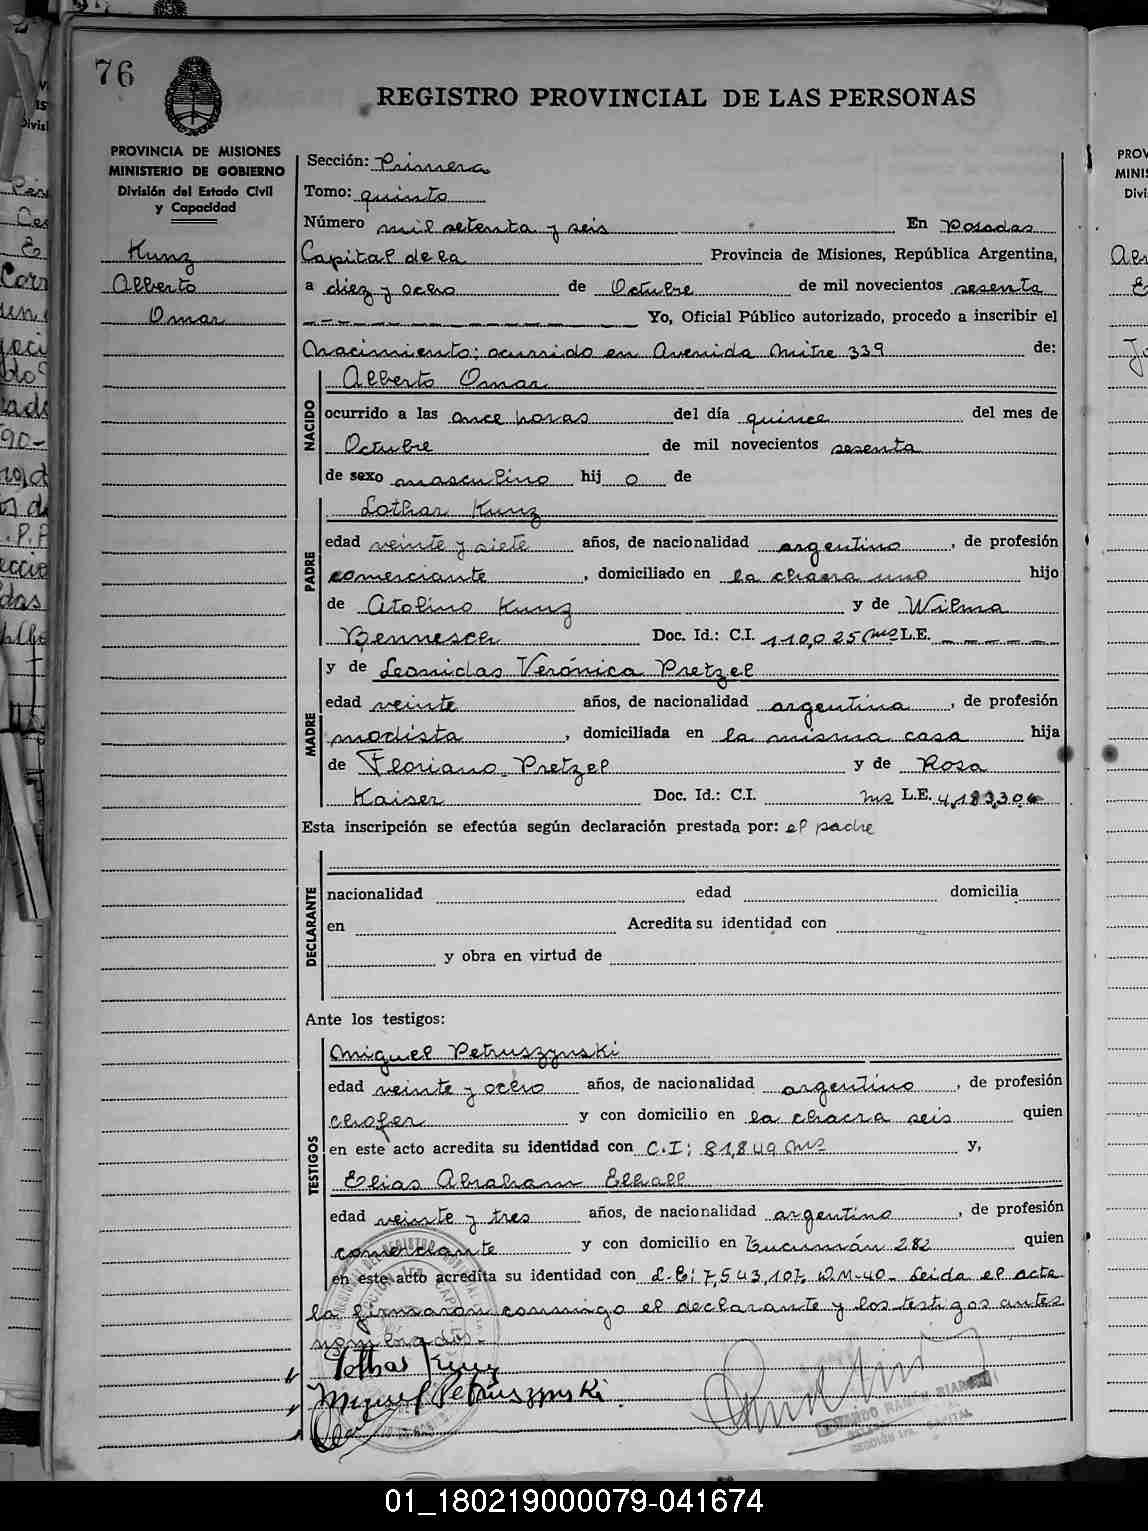 76
REGISTRO PROVINCIAL DE LAS PERSONAS
PROVINCIA DE MISIONES
MINISTERIO DE GOBIERNO
División del Estado Civil
y Capacidad
Kunz
Alberto
Omar
Sección: Primera
Tomo: quinto
Número mil setenta y seis En Posadas
Capital de la Provincia de Misiones, República Argentina,
a diez y ocho de Octubre de mil novecientos sesenta
Yo, Oficial Público autorizado, procedo a inscribir el
Nacimiento; ocurrido en Avenida Mitre 339 de:
NACIDO
Alberto Omar
ocurrido a las once horas del día quince del mes de
Octubre de mil novecientos sesenta
de sexo masculino hijo de
PADRE
Lothar Kunz
edad veinte y siete años, de nacionalidad argentino, de profesión
comerciante, domiciliado en la chacra uno hijo
de Atolino Kunz y de Wilma
Bennesch Doc. Id.: C.I. 110,025 Mns L.E. - - - -
MADRE
y de Leonidas Verónica Pretzel
edad veinte años, de nacionalidad argentina, de profesión
modista, domiciliada en la misma casa hija
de Floriano Pretzel y de Rosa
Kaiser Doc. Id.: C.I. Mns L.E. 4,183,306
Esta inscripción se efectúa según declaración prestada por: el padre
DECLARANTE
nacionalidad edad domicilia
en Acredita su identidad con
y obra en virtud de
Ante los testigos:
TESTIGOS
Miguel Petruszynski
edad veinte y ocho años, de nacionalidad argentino, de profesión
chofer y con domicilio en la chacra seis quien
en este acto acredita su identidad con C.I: 81,849 Mns y,
Elias Abraham Elhall
edad veinte y tres años, de nacionalidad argentino, de profesión
comerciante y con domicilio en Tucumán 282 quien
en este acto acredita su identidad con L.E: 7,543,107, D.M-40- Leida el acta
la firmaron conmigo el declarante y los testigos antes
nombrados.-
Lothar Kunz
Miguel Petruszynski
SECCIÓN 1ra. CAPITAL
01_180219000079-041674